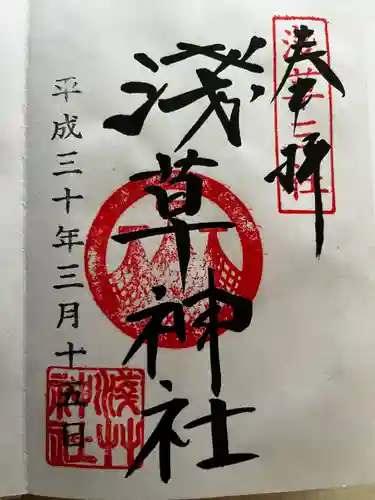 奉拝
浅草三社
浅草神社
平成三十年三月十五日
浅草神社